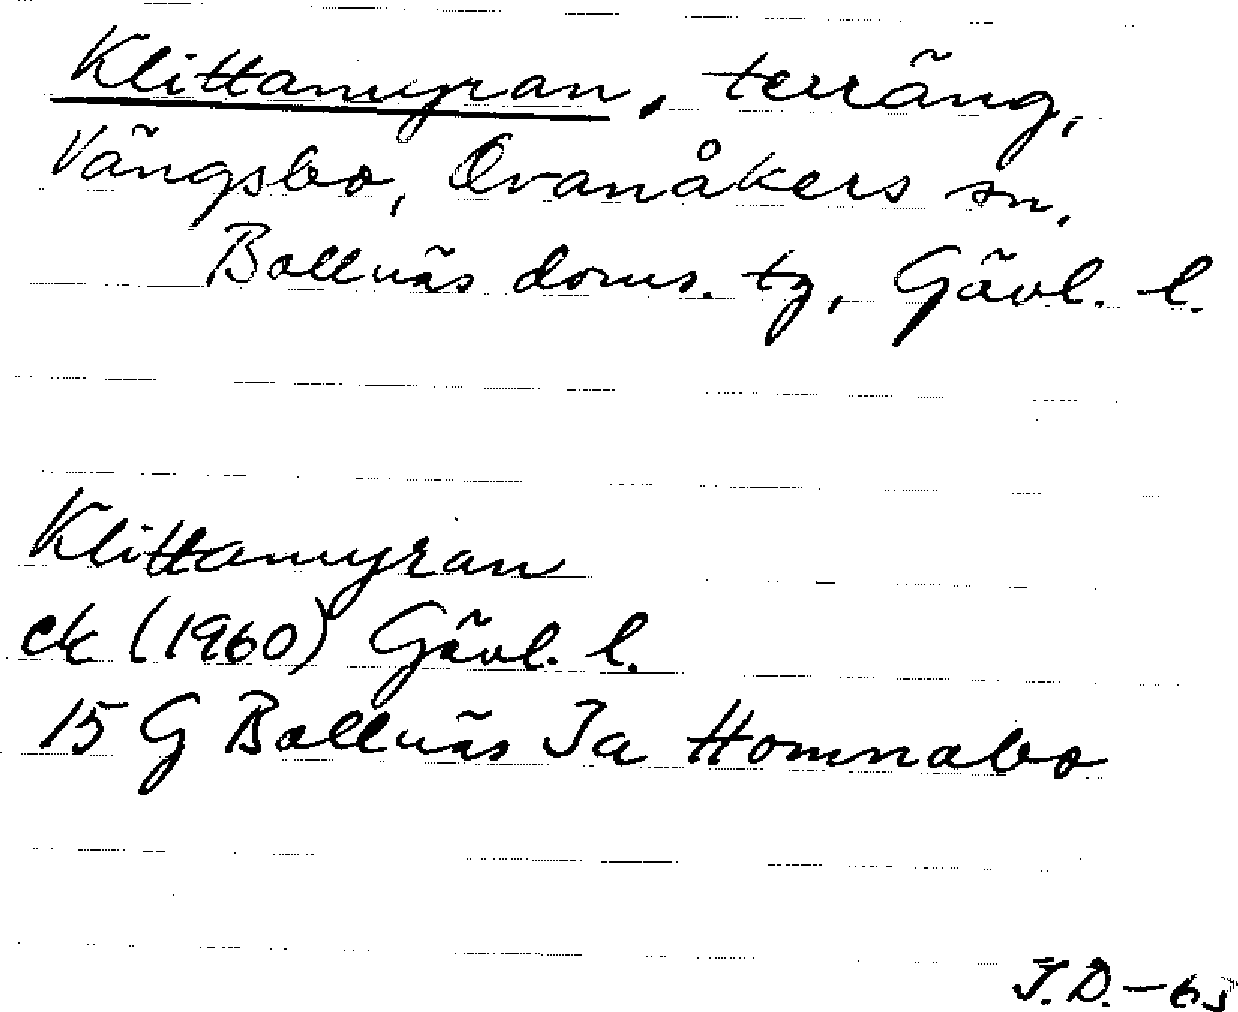 Klittamyran, terräng,
Vängsbo, Ovanåkers sn,
Bollnäs doms. tg, Gävl. l.
Klittamyran
ek (1960) Gävl. l.
15 G Bollnäs Ja Homnabo
J.D.-65